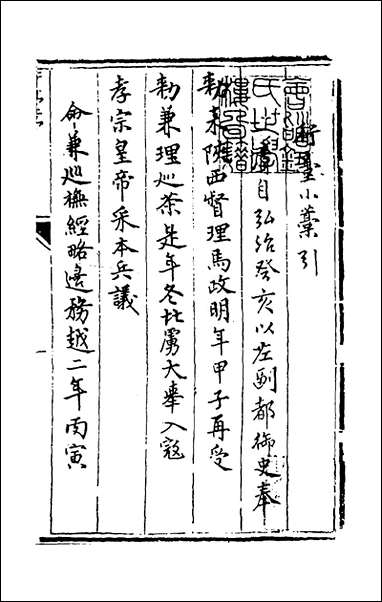 行臺小藁引
自弘治癸亥以左副都御史奉
勑來陝西督理馬政明年甲子再受
勑兼理巡茶是年冬北虜大舉入寇
孝宗皇帝采本兵議
命兼巡撫經略邊務越二年丙寅